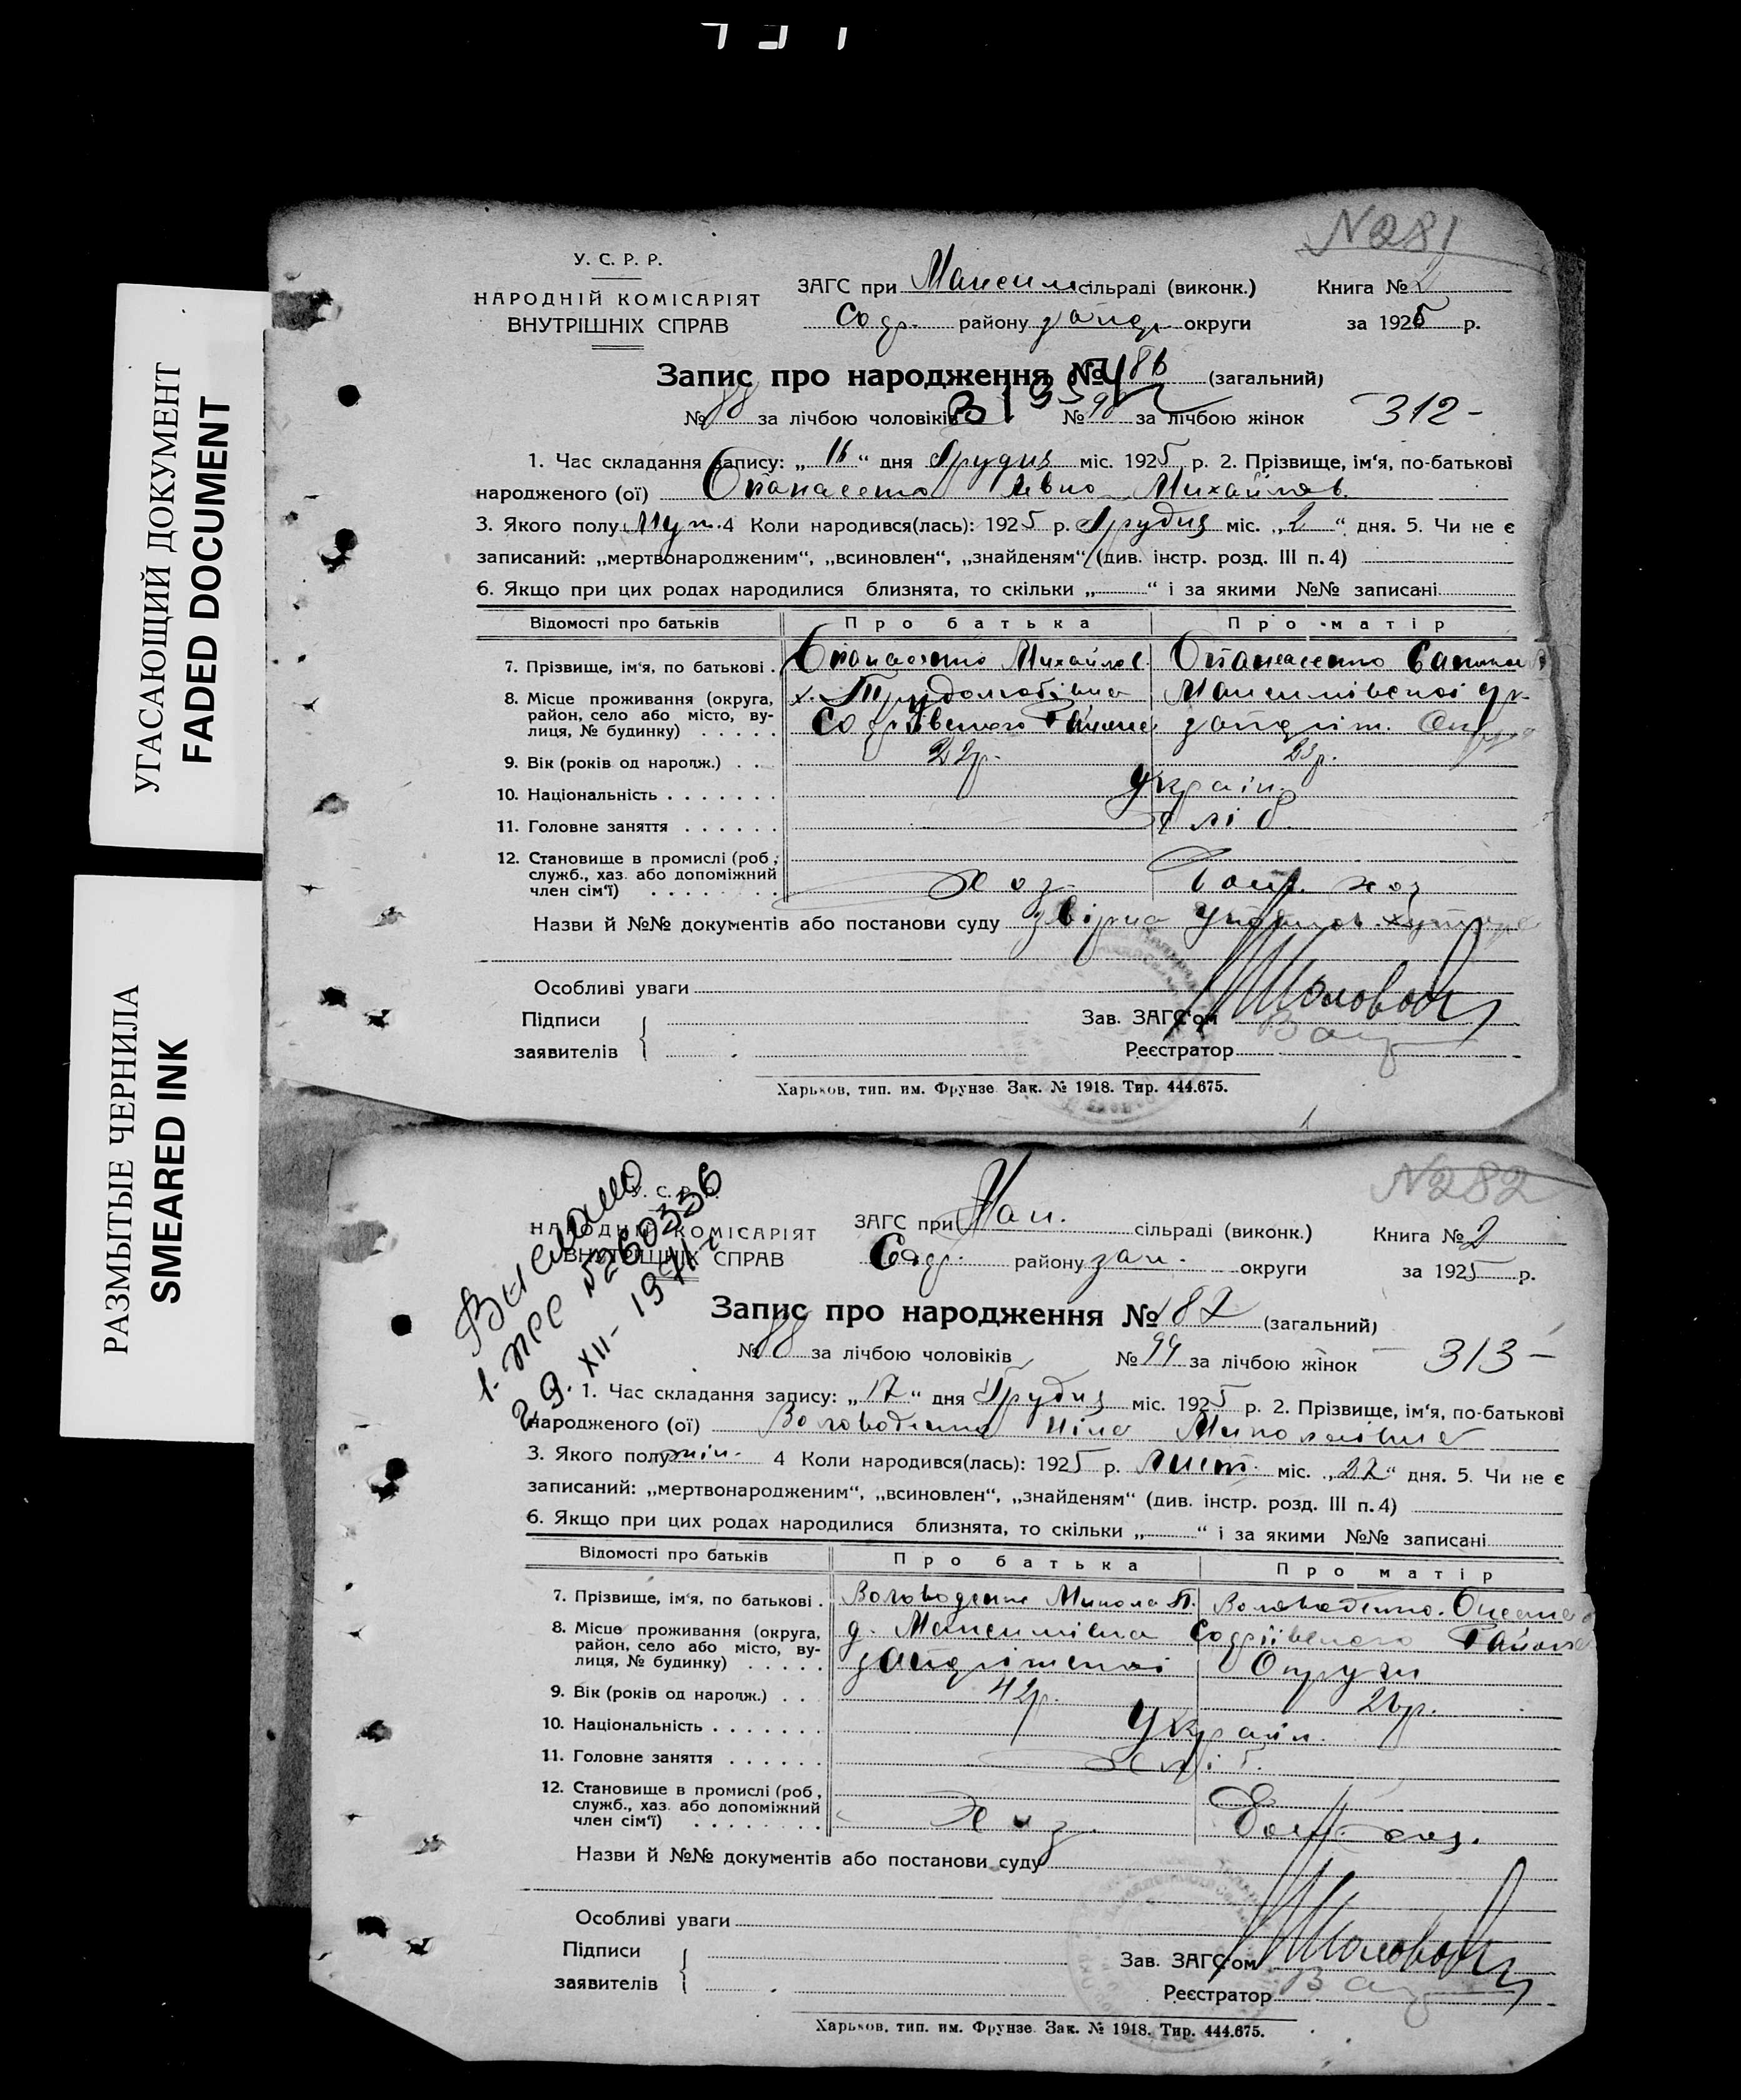 УГАСАЮЩИЙ ДОКУМЕНТ
FADED DOCUMENT
РАЗМЫТЫЕ ЧЕРНИЛА
SMEARED INK
N281
У. С. Р. Р.
НАРОДНІЙ КОМІСАРІЯТ
ВНУТРІШНІХ СПРАВ
ЗАГС при Максим сільраді (виконк.)
Соф. району запор округи
Книга № 2
за 1925 р.
Запис про народження № 186 (загальний)
№ 88 за лічбою чоловіків № 98 за лічбою жінок
312-
1. Час складання запису: „16“ дня Грудня міс. 1925 р. 2. Прізвище, ім‘я, по-батькові
народженого (ої) Опанасенко Михайлов.
3. Якого полу Муж. 4 Коли народився(лась): 1925 р. Грудня міс. „2“ дня. 5. Чи не є
записаний: „мертвонародженим“, „всиновлен“, „знайденям“ (див. інстр. розд. III п. 4)
6. Якщо при цих родах народилися близнята, то скільки „ “ і за якими №№ записані
Відомості про батьків Про батька Про матір
7. Прізвище, ім‘я, по батькові . Опанасенко Михайло Опанасенко
8. Місце проживання (округа, х. Трудолюбівка Максимівської
район, село або місто, ву- Софіївського Району запоріж.
лиця, № будинку) . . . . .
9. Вік (років од народж.) . . 22р. 23р.
10. Національність . . . . . . . Україн.
11. Головне заняття . . . . . . Хліб.
12. Становище в промислі (роб.,
служб., хаз. або допоміжний
член сім‘ї) . . . . . . . . Хоз. хоз
Назви й №№ документів або постанови суду
Особливі уваги
Підписи
заявителів
Зав. ЗАГС‘ом
Реєстратор
Харьков, тип. им. Фрунзе Зак. № 1918. Тир. 444.675.
N282
У. С. Р. Р.
НАРОДНІЙ КОМІСАРІЯТ
ВНУТРІШНІХ СПРАВ
№260336
29. XII - 1941 г
ЗАГС при Мак. сільраді (виконк.)
Соф. району зап. округи
Книга № 2
за 1925 р.
Запис про народження № 187 (загальний)
№ 88 за лічбою чоловіків № 99 за лічбою жінок
313-
1. Час складання запису: „17“ дня Грудня міс. 1925 р. 2. Прізвище, ім‘я, по-батькові
народженого (ої) Воловоденко Ніна Миколаївна
3. Якого полу жін. 4 Коли народився(лась): 1925 р. Лист. міс. „27“ дня. 5. Чи не є
записаний: „мертвонародженим“, „всиновлен“, „знайденям“ (див. інстр. розд. III п. 4)
6. Якщо при цих родах народилися близнята, то скільки „ “ і за якими №№ записані
Відомості про батьків Про батька Про матір
7. Прізвище, ім‘я, по батькові . Воловоденко Микола П. Воловоденко. Оксана
8. Місце проживання (округа, д. Максимівка Софіївського Району
район, село або місто, ву- запоріжської Округи
лиця, № будинку) . . . . .
9. Вік (років од народж.) . . 42р. 26р.
10. Національність . . . . . . . Україн.
11. Головне заняття . . . . . . Хліб.
12. Становище в промислі (роб.,
служб., хаз. або допоміжний
член сім‘ї) . . . . . . . . Хоз. Дом. хоз.
Назви й №№ документів або постанови суду
Особливі уваги
Підписи
заявителів
Зав. ЗАГС‘ом
Реєстратор
Харьков, тип. им. Фрунзе Зак. № 1918. Тир. 444.675.